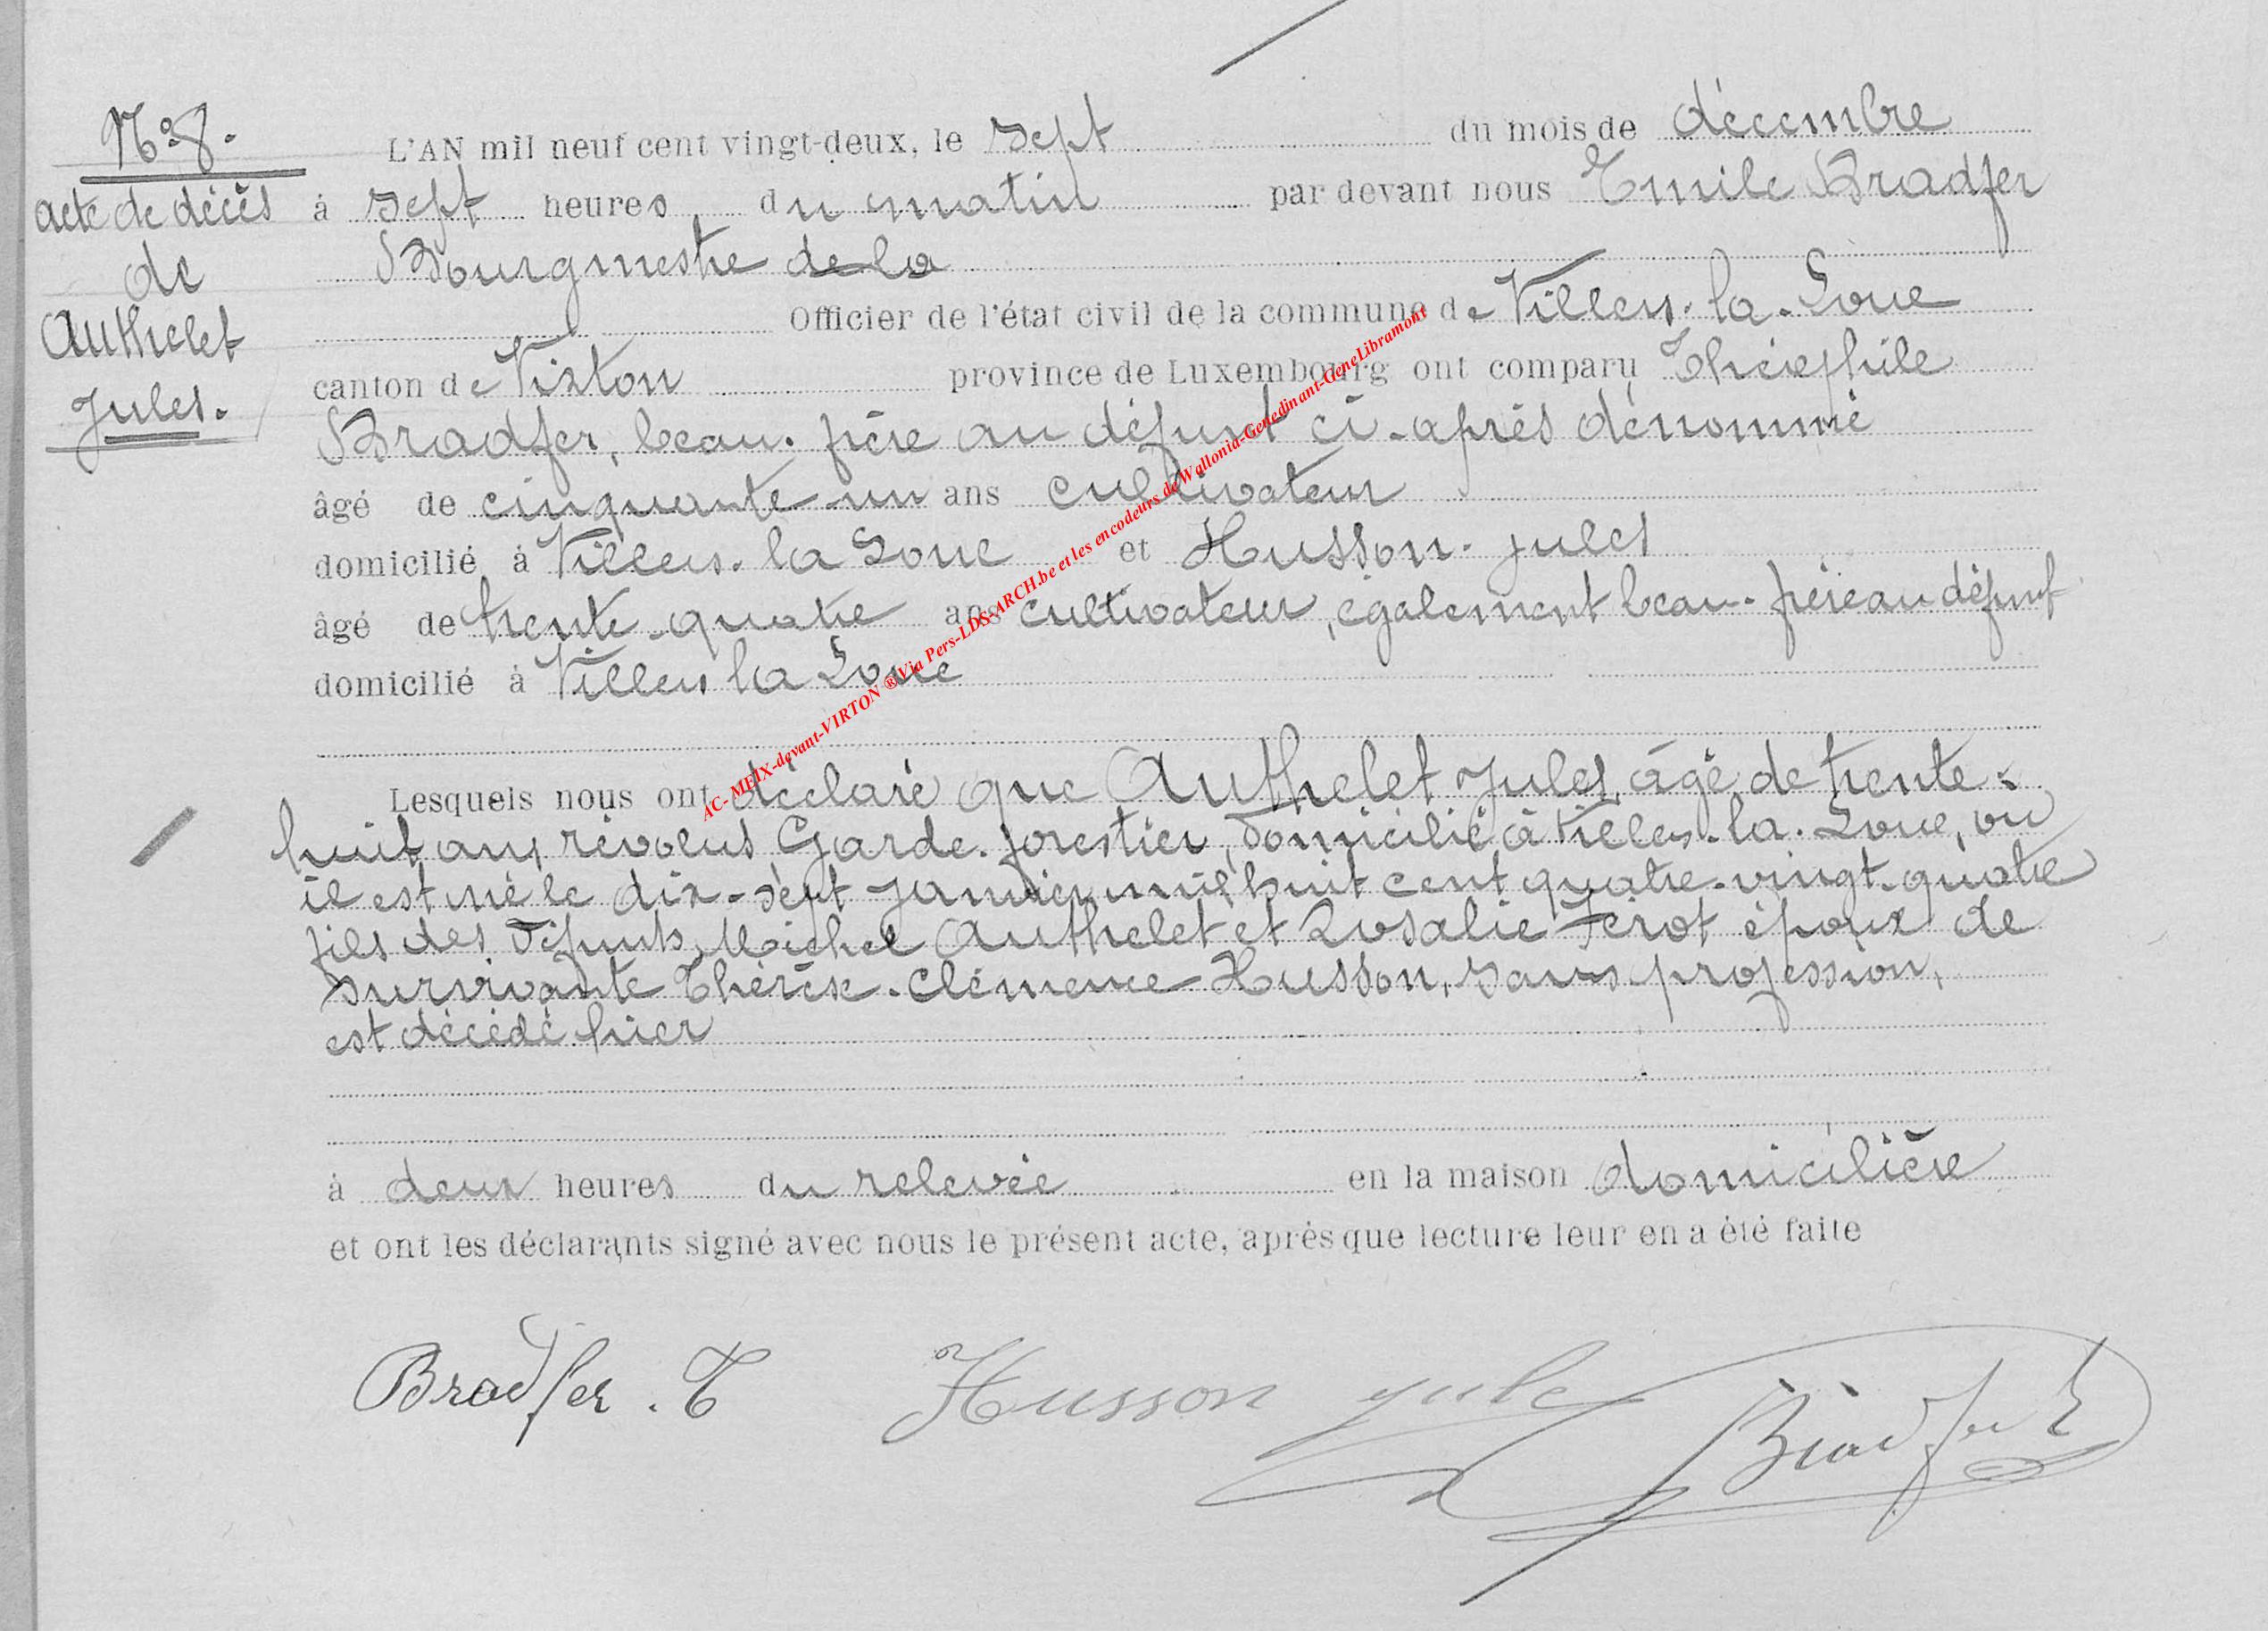 N° 8.
acte de décès
de
Authelet
Jules.
L'AN mil neuf cent vingt-deux, le sept du mois de décembre
à sept heures du matin par devant nous Emile Bradfer
Bourgmestre de la
Officier de l'état civil de la commune de Villers-la-Loue
canton de Virton province de Luxembourg ont comparu Théophile
Bradfer, beau-frère au défunt ci-après dénommé
âgé de cinquante-un ans cultivateur
domicilié à Villers-la Loue et Husson-Jules
âgé de trente-quatre ans cultivateur, également beau-frère au défunt
domicilié à Villers la Loue
Lesquels nous ont déclaré que Authelet Jules, âgé de trente-
huit ans révolus Garde-forestier, domicilié à Villers-la-Loue, ou
il est né le dix-sept janvier mil huit cent quatre-vingt-quatre
fils des défunts Michel Authelet et Rosalie Ferot époux de
survivante Thérèse-Clémence Husson, sans profession,
est décédé hier
à deux heures du relevée en la maison domicilière
et ont les déclarants signé avec nous le présent acte, après que lecture leur en a été faite
Bradfer. T Husson Jule Bradfer E
AC- MEIX-devant-VIRTON ® Via Pers-LDS-ARCH.be et les encodeurs de Wallonia-Genedinant-GeneLibramont